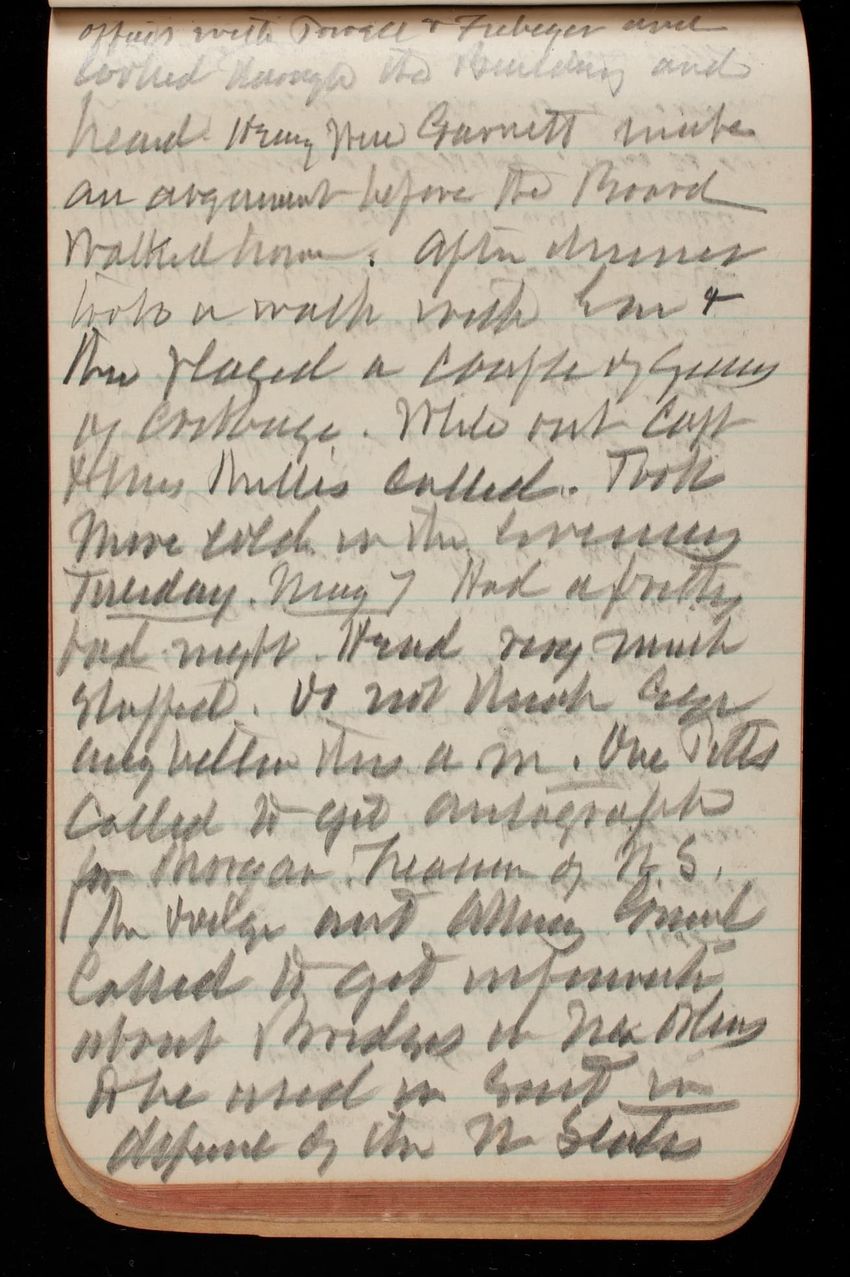 offices with Powell & Fiebeger and
looked through the Building and
heard Henry Wise Garnett make
an argument before the Board
Walked home. After dinner
took a walk with Em &
then played a couple of Games
of Cribbage. While out Capt
& Mrs Bullis called. Took
More cold in the evening
Tuesday. May 7 Had a pretty
bad night. Head very much
stopped. Do not think Ear
any better this a m. One Potts
Called to get autograph
for Morgan Treasurer of U S.
The Judge and Attorney General
Called to get information
about Bridges in New Orleans
to be used in suit in
defense of the U States